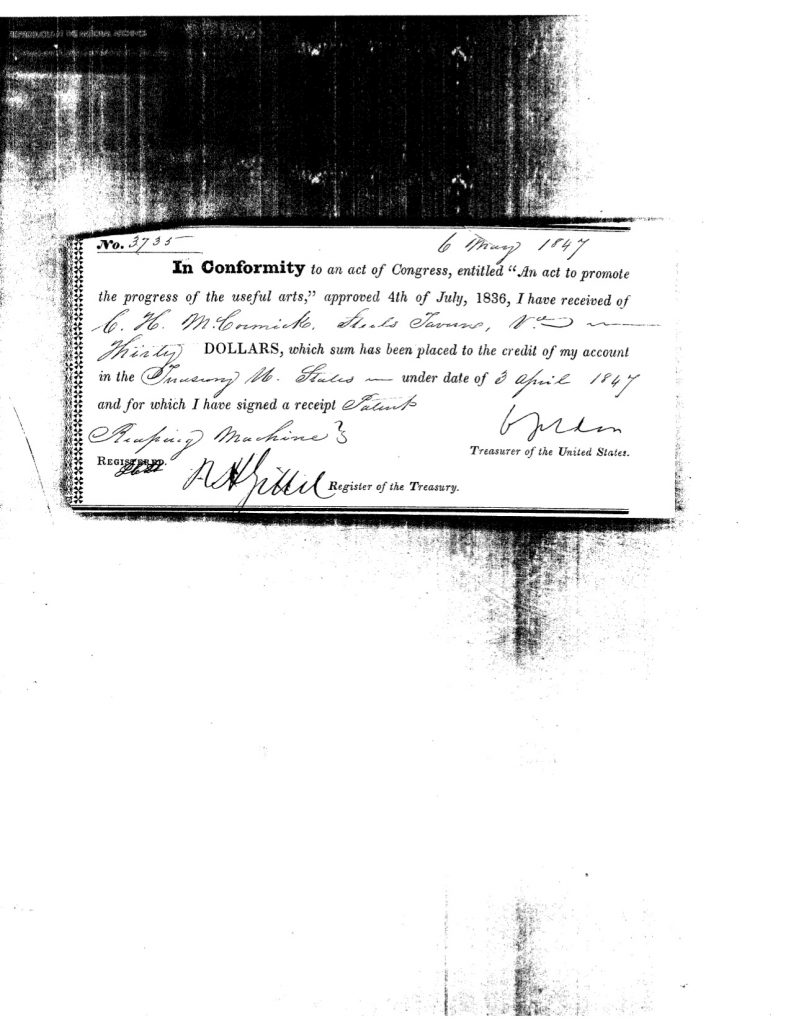 No. 3735 6 May 1847
In Conformity to an act of Congress, entitled "An act to promote
the progress of the useful arts," approved 4th of July, 1836, I have received of
C. H. McCormick, Steels Taverns, Va
Thirty DOLLARS, which sum has been placed to the credit of my account
in the Treasury U. States under date of 3 April 1847
and for which I have signed a receipt Patent
Reaping Machine
Treasurer of the United States.
REGISTERED.
Register of the Treasury.